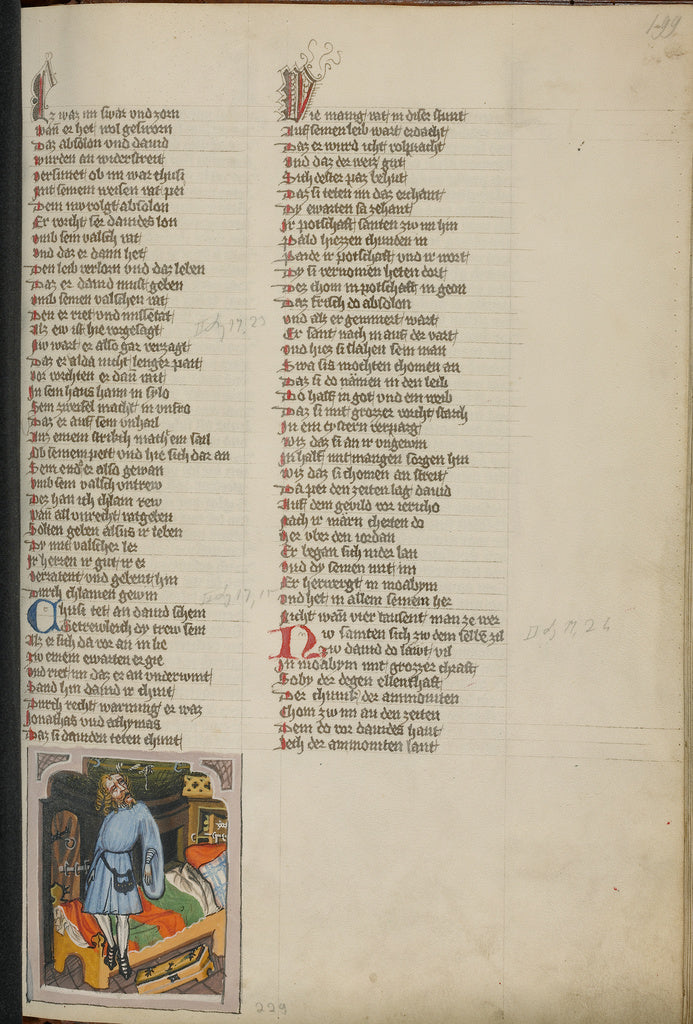 199
Ez waz im swar vnd zorn
wan er het wol gesworn
Daz absolon vnd dauid
wurden an widerstreit
versunet ob im war chusi
mit seinem weisen rat pei
Dem nw volgt absolon
Er vorcht ser dauides lon
vmb sein valsch rat
vnd daz er dann het
Den leib verlorn vnd daz leben
Daz er dauid must geben
vmb seinen valschen rat
Den er riet vnd missetat
Alz ew ist hie vorgesagt
Nw wart er also gar verzagt
Daz er alda nicht lenger pait
vor vorchten er dan rait
In sein haus hann in sylo
Sein zweifel macht in vnfro
Daz er auf sein vnhail
Auz einem strikch macht em sail
Ob seinem pett vnd hie sich dar an
Sein end er also gewan
vmb sein valsch vntrew
Dez han ich chlain rew
wan all vnrecht ratgeben
Solten geben alsus ir leben
Dy mit valscher ler
Ir herren ir gut ir er
verratent vnd gebent hin
Durch chlainen gewin
Chusi tet an dauid schein
Getrewleich dy trew sein
Alz er sich da vor an in lie
Zw einem ewarten er gie
vnd riet im daz er an vnderwint
Sand hin dauid ir chint
Durch recht warnung er waz
Jonathas vnd achymas
Daz si dauiden teten chunt
Wie manig rat in diser stunt
Auf seinen leib wart erdacht
Daz er wurd icht volpracht
vnd daz der weiz gut
Sich dester paz behut
Daz si teten im daz erchant
Dy ewarten sa zehant
Ir potschaft santen zw im hin
Pald hiezzen chunden in
Paide ir potschaft vnd ir wort
Dy si vernomen heten dort
Dez chom in potschaft in gegn
Daz frisch do absolon
vnd alz er geinnert wart
Er sant nach in auf der vart
vnd hiez si slahen sein man
Swa si s mochten chomen an
Daz si do namen in den leib
Do half in got vnd ein weib
Daz si mit grozzer vorcht starch
In ein cystern verparg
Wie daz si an ir vngewin
In half mit mangen sorgen hin
Wie daz si chomen an streit
Da per den zeiten lag dauid
Auf dem gevild vor iericho
Nach ir marn cherten do
Her vber den iordan
Er began sich nider lan
vnd dy seinen mit im
Er herwergt in moabym
vnd het in allem seinem her
Nicht wan vier tausent man ze wer
Nw samten sich zw dem selben zil
Zw dauid do lawt vil
In moabym mit grozzer chraft
Soby der degen ellenthaft
Der chunik der ammoniten
Chom zw im an den zeiten
Dem do vor dauides hant
Iech der ammoniten lant
II Sam 17, 23
II Sam 17, 15
II Sam 17, 26
229